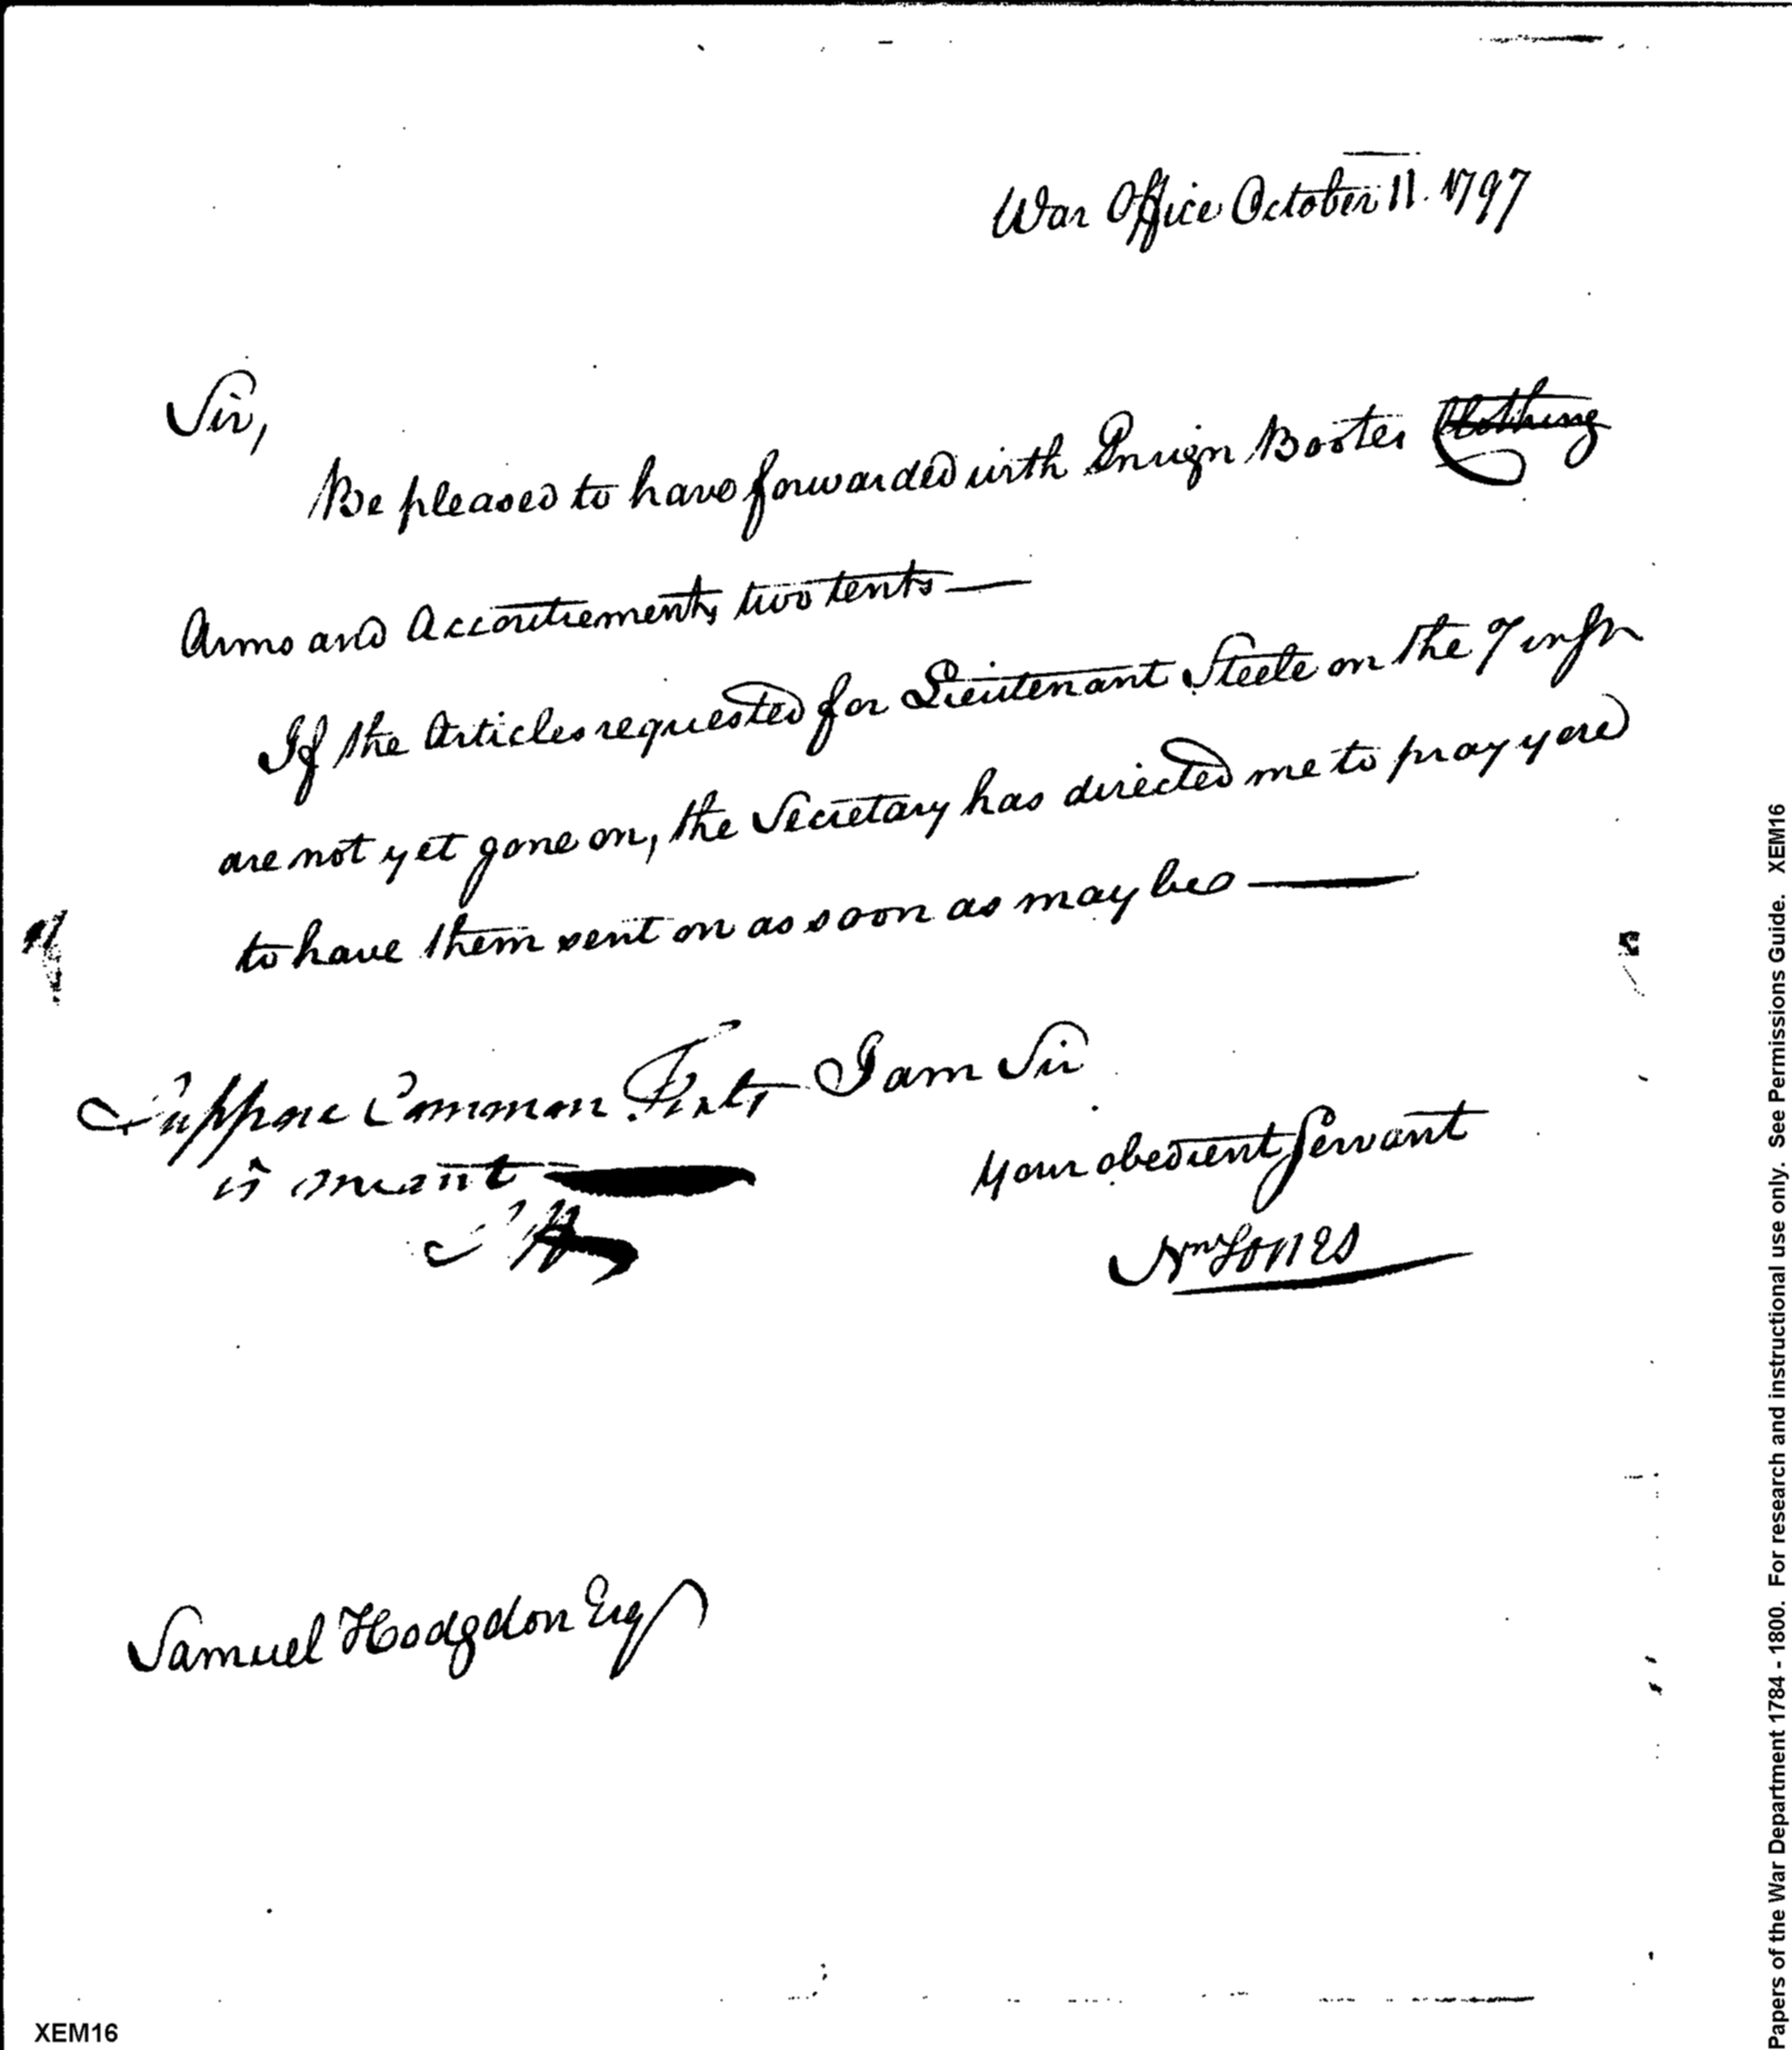 War Office October 11. 1797
Sir,
Be pleased to have forwarded with Ensign Bootes Clothing
Arms and Accoutrements two tents —
If the Articles requested for Lieutenant Steele on the 7 inst
are not yet gone on, the Secretary has directed me to pray you
to have them sent on as soon as may be —
I am Sir
Your obedient Servant
Nn Jones
Suppose Common Tents
is meant —
SH
Samuel Hodgdon Esq
XEM16
Papers of the War Department 1784 - 1800. For research and instructional use only. See Permissions Guide. XEM16